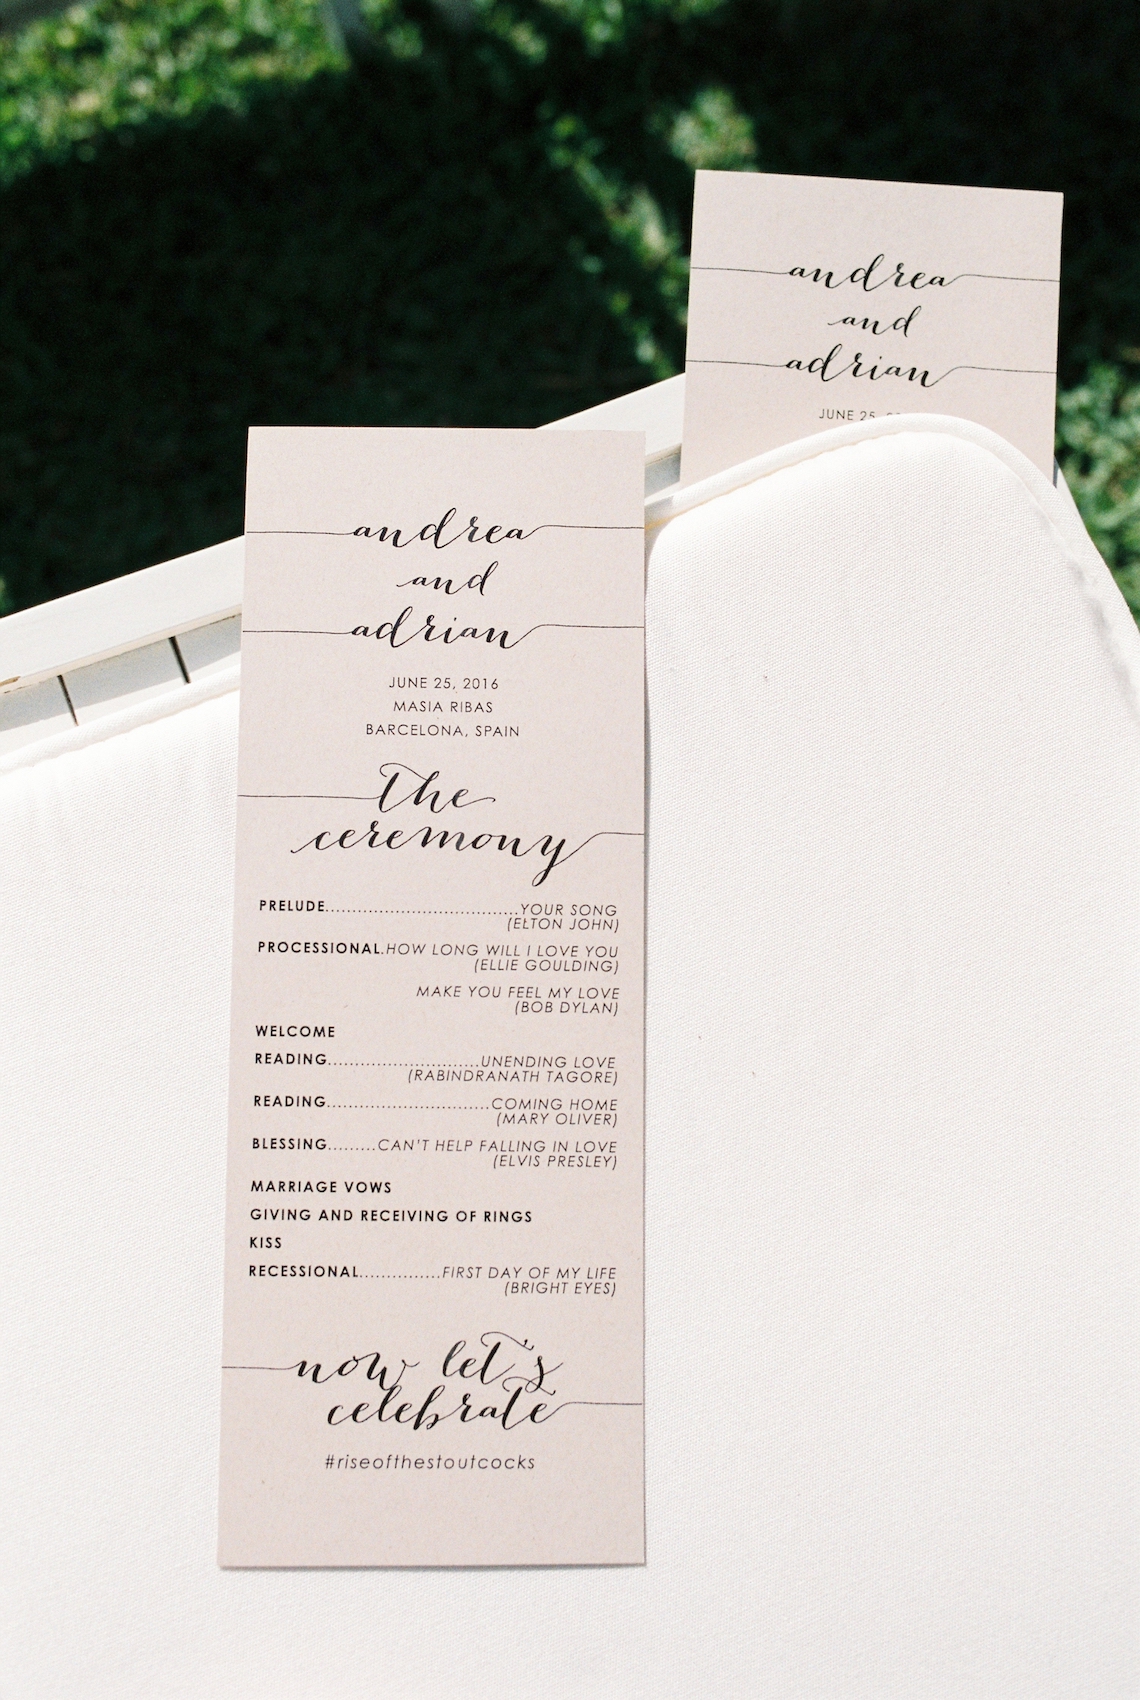 andrea
and
adrian
JUNE 25, 2016
MASIA RIBAS
BARCELONA, SPAIN
the
ceremony
PRELUDE.....................................YOUR SONG
(ELTON JOHN)
PROCESSIONAL.HOW LONG WILL I LOVE YOU
(ELLIE GOULDING)
MAKE YOU FEEL MY LOVE
(BOB DYLAN)
WELCOME
READING.............................UNENDING LOVE
(RABINDRANATH TAGORE)
READING...............................COMING HOME
(MARY OLIVER)
BLESSING.........CAN'T HELP FALLING IN LOVE
(ELVIS PRESLEY)
MARRIAGE VOWS
GIVING AND RECEIVING OF RINGS
KISS
RECESSIONAL................FIRST DAY OF MY LIFE
(BRIGHT EYES)
now let's
celebrate
#riseofthestoutcocks
andrea
and
adrian
JUNE 25,